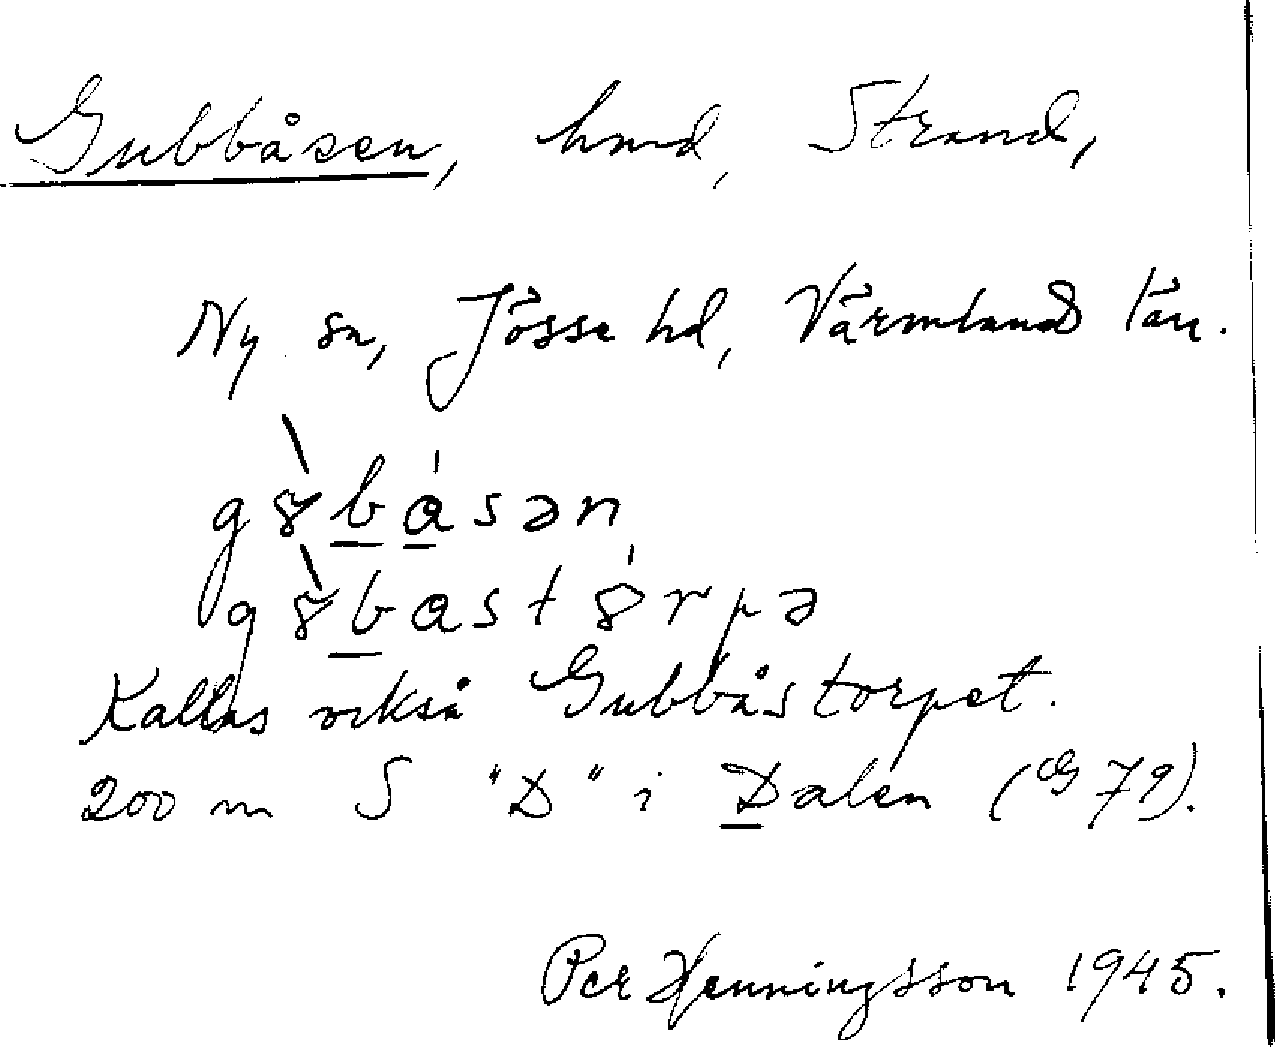 Gubbåsen, hmd, Strand,
Ny sn, Jösse hd, Värmlands län.
gȣ̀básən
gȣ̀bastȣ́rpə
Kallas också Gubbåstorpet.
200 m S "D" i Dalen (CG 79).
Per Henningsson 1945.